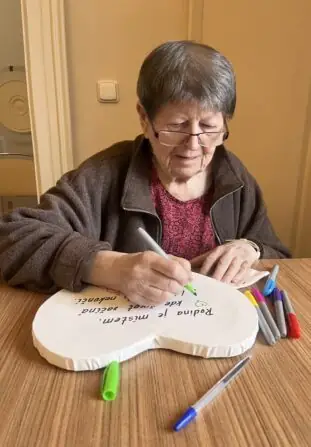 Rodina je místem
kde život začíná
nekončí